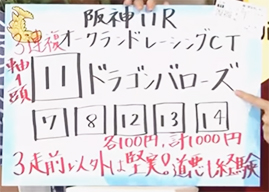 阪神11R
3連複 オークランドレーシングCT
軸1頭 11 ドラゴンバローズ
7 8 12 13 14
各100円、計1000円
3走前以外は堅実!!道悪も経験